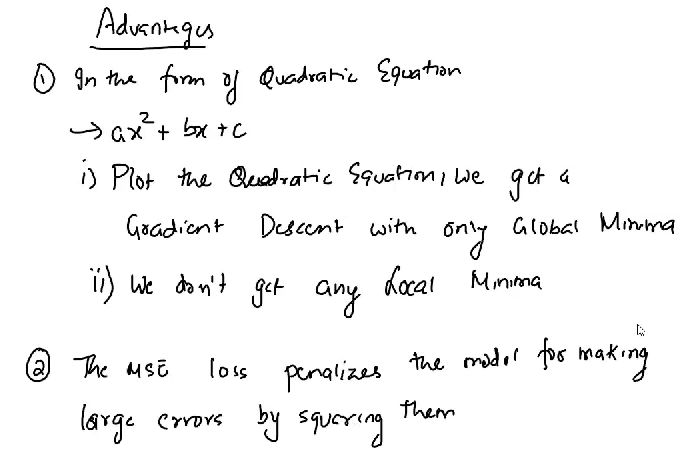 Advantages
① In the form of Quadratic Equation
→ ax² + bx + c
i) Plot the Quadratic Equation, we get a
Gradient Descent with only Global Minima
ii) We don't get any Local Minima
② The MSE loss penalizes the model for making
large errors by squaring them